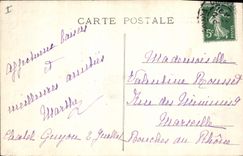 I
CARTE POSTALE
Affectueux baisers
et
meilleures amitiés
Marthe
Castel Guyon
Mademoiselle
Valentine Rousset
Rue des Minimes
Marseille
Bouches du Rhône